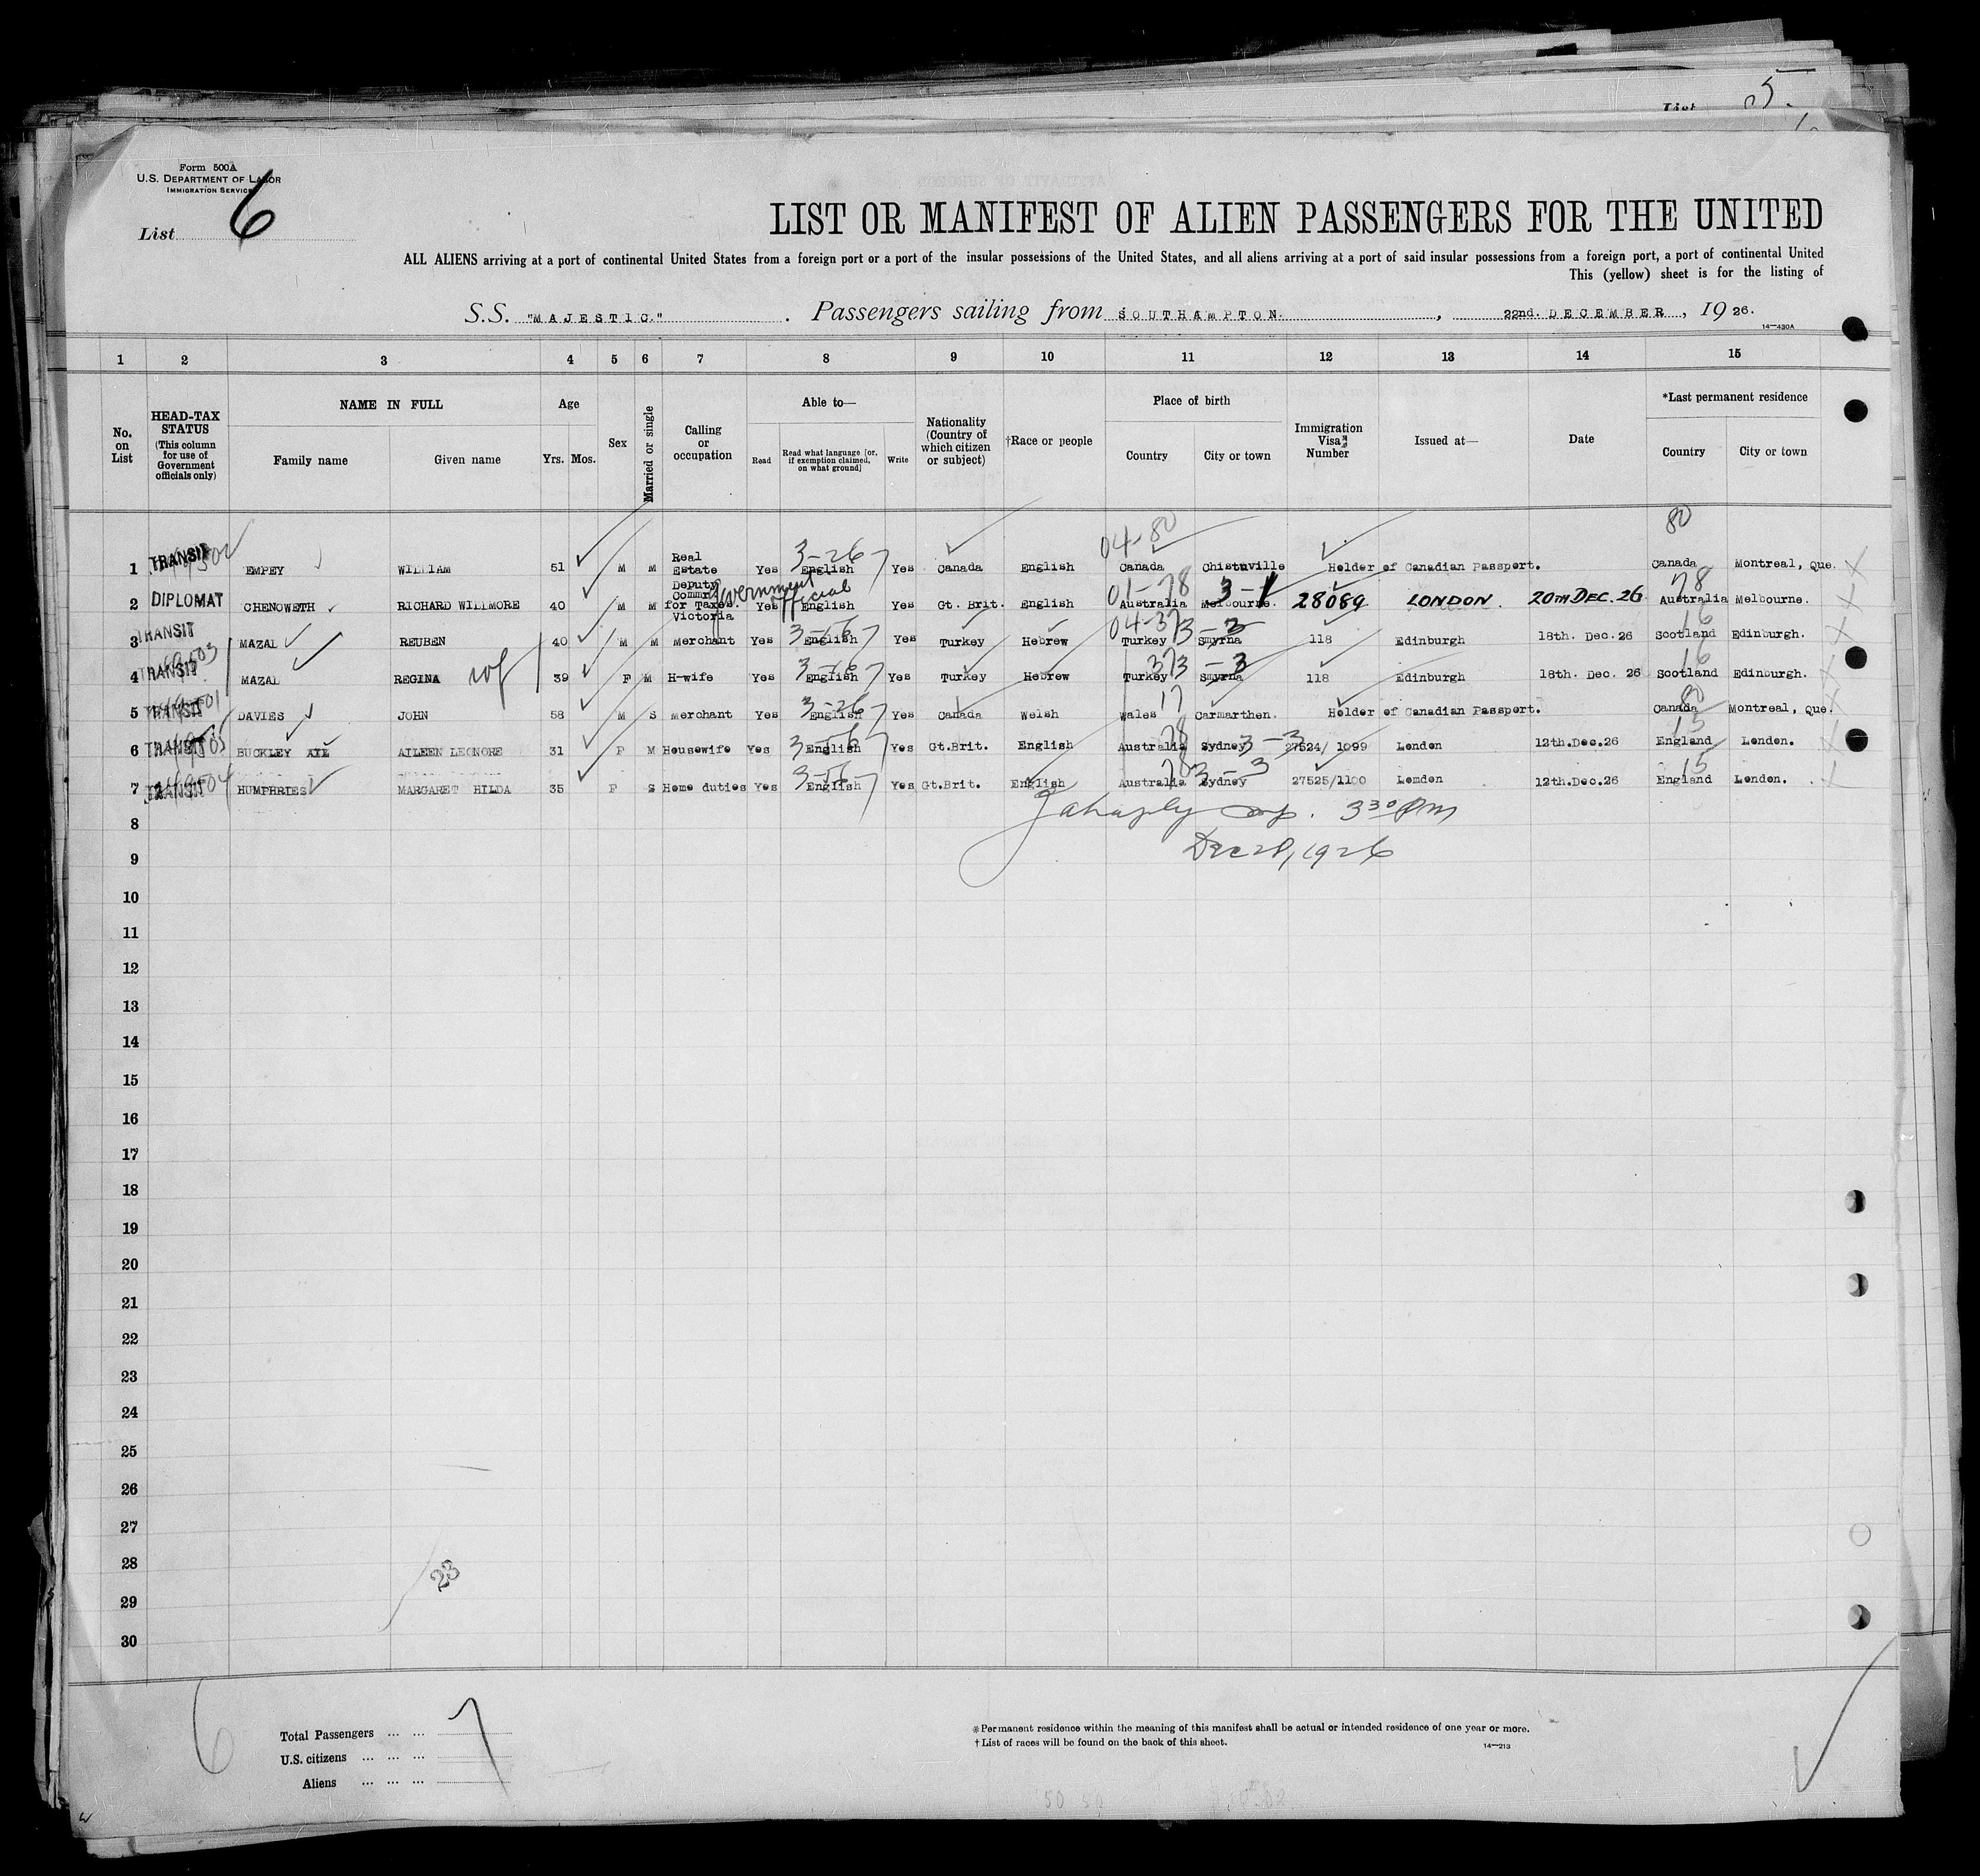 List 5.
Form 500A
U.S. DEPARTMENT OF LABOR
IMMIGRATION SERVICE
List 6
LIST OR MANIFEST OF ALIEN PASSENGERS FOR THE UNITED
ALL ALIENS arriving at a port of continental United States from a foreign port or a port of the insular possessions of the United States, and all aliens arriving at a port of said insular possessions from a foreign port, a port of continental United
This (yellow) sheet is for the listing of
S.S. "MAJESTIC." Passengers sailing from SOUTHAMPTON. , 22nd. DECEMBER , 19 26.
14—430A
1 2 3 4 5 6 7 8 9 10 11 12 13 14 15
No. on List
HEAD-TAX STATUS (This column for use of Government officials only)
NAME IN FULL
Family name Given name
Age
Yrs. Mos.
Sex
Married or single
Calling or occupation
Able to—
Read Read what language [or, if exemption claimed, on what ground] Write
Nationality (Country of which citizen or subject)
†Race or people
Place of birth
Country City or town
Immigration Visa Number
Issued at—
Date
*Last permanent residence
Country City or town
04-80 80
1 TRANSIT EMPEY WILLIAM 51 M M Real Estate Yes 3-26 English Yes Canada English Canada Holder of Canadian Passport. Canada Montreal, Que.
2 DIPLOMAT CHENOWETH RICHARD WILLMORE 40 M M Deputy Comm. for Taxes. Victoria Government Official Yes English Yes Gt. Brit. English 01-78 Australia 3-1 Melbourne. 28089 LONDON. 20TH DEC. 26 78 Australia Melbourne.
3 TRANSIT MAZAL REUBEN 40 M M Merchant Yes 3-56 English Yes Turkey Hebrew 04-373-3 Turkey Smyrna 118 Edinburgh 18th. Dec. 26 16 Scotland Edinburgh.
4 TRANSIT MAZAL REGINA wf 39 F M H-wife Yes 3-56 English Yes Turkey Hebrew 373-3 Turkey Smyrna 118 Edinburgh 18th. Dec. 26 16 Scotland Edinburgh.
5 TRANSIT DAVIES JOHN 58 M S Merchant Yes 3-26 English Yes Canada Welsh 17 Wales Carmarthen. Holder of Canadian Passport. 80 Canada Montreal, Que.
6 TRANSIT BUCKLEY AILEEN LEONORE 31 F M Housewife Yes 3-56 English Yes Gt.Brit. English 78 Australia Sydney 3-3 27524/ 1099 London 12th.Dec.26 15 England London.
7 TRANSIT HUMPHRIES MARGARET HILDA 35 F S Home duties Yes 3-56 English Yes Gt.Brit. English 78 Australia 3-3 Sydney 27525/1100 London 12th.Dec.26 15 England London.
8 3 30 PM
9 Dec 28, 1926
10
11
12
13
14
15
16
17
18
19
20
21
22
23
24
25
26
27
28 23
29
30
6
Total Passengers ... ... 7
U.S. citizens ... ... ...
Aliens ... ... ...
*Permanent residence within the meaning of this manifest shall be actual or intended residence of one year or more.
†List of races will be found on the back of this sheet.
14—213